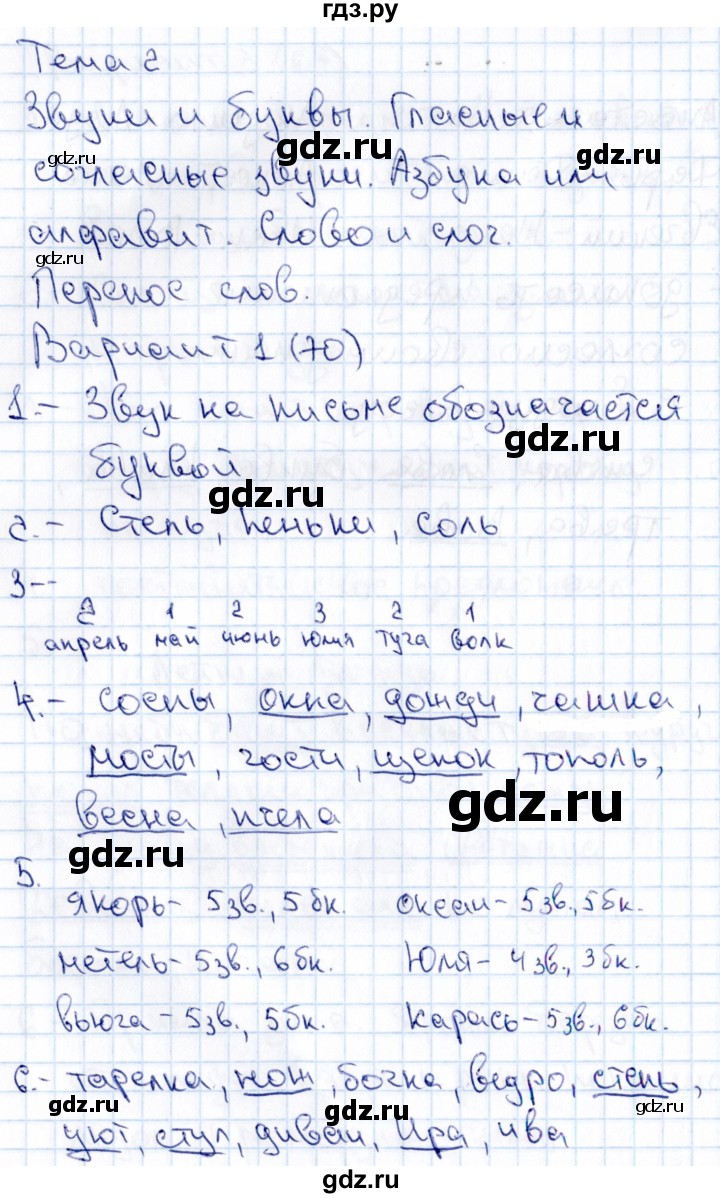 гдз.ру
Тема 2
Звуки и буквы. Гласные и
согласные звуки. Азбука или
алфавит. Слово и слог.
Перенос слов.
Вариант 1 (70)
1.- Звук на письме обозначается
буквой
2.- Степь, пеньки, соль
3--
2 1 2 3 2 1
апрель май июнь юлия туча волк
4.- сосны, окна, дожди, чашка,
мосты, гости, щенок, тополь,
весна, пчела
5.
якорь- 5зв., 5бк. океан- 5зв., 5бк.
метель- 5зв., 6бк. Юля- 4зв., 3бк.
вьюга- 5зв., 5бк. карась- 5зв., 6бк.
6.- тарелка, нож, бочка, ведро, степь,
уют, стул, диван, Ира, ива
gdz.ru
gdz.ru
gdz.ru
gdz.ru
gdz.ru
gdz.ru
gdz.ru
gdz.ru
gdz.ru
gdz.ru
gdz.ru
gdz.ru